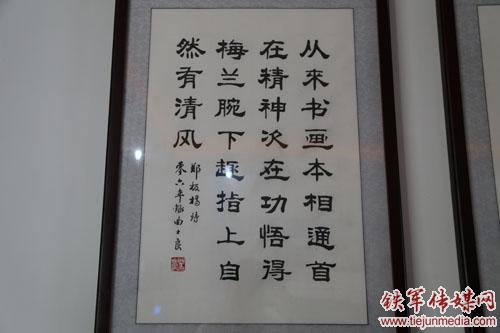 从来书画本相通首
在精神次在功悟得
梅兰腕下趣指上自
然有清风
郑板桥诗
零六年
铁军传媒网
www.tiejunmedia.com